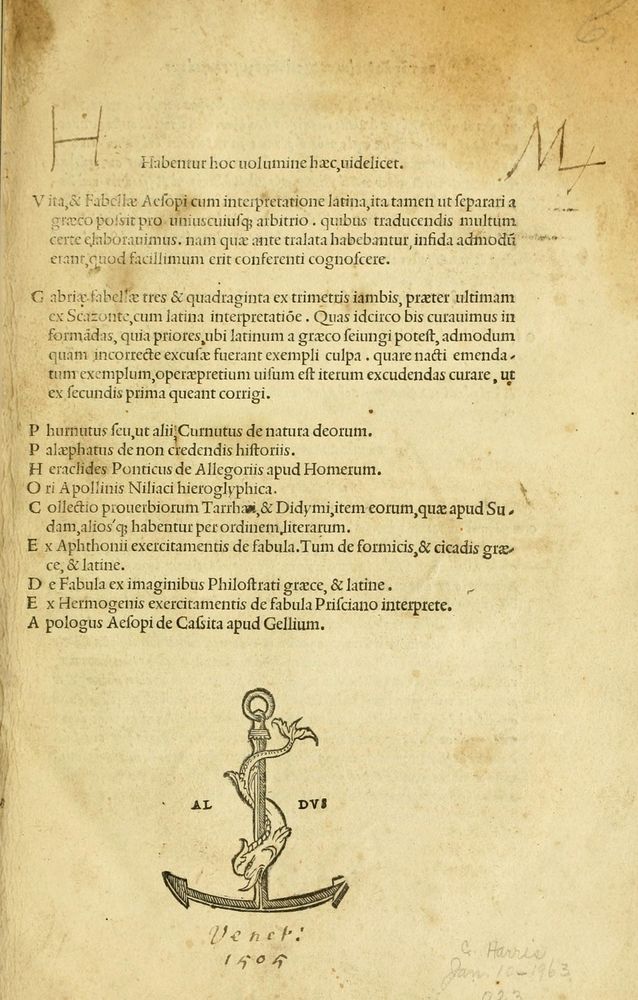 6.
H
M
Habentur hoc uolumine hæc, uidelicet.
Vita, & Fabellæ Aeſopi cum interpretatione latina, ita tamen ut ſeparari a
græco poſsit pro uniuscuiuſq; arbitrio. quibus traducendis multum
certe elaborauimus. nam quæ ante tralata habebantur, infida admodū
erant, quod facillimum erit conferenti cognoſcere.
Gabriæ fabellæ tres & quadraginta ex trimetris iambis, præter ultimam
ex Scazonte, cum latina interpretatiōe. Quas idcirco bis curauimus in
formādas, quia priores, ubi latinum a græco ſeiungi poteſt, admodum
quam incorrecte excuſæ fuerant exempli culpa. quare nacti emenda-
tum exemplum, operæpretium uiſum eſt iterum excudendas curare, ut
ex ſecundis prima queant corrigi.
P hurnutus ſeu, ut alii, Curnutus de natura deorum.
P alæphatus de non credendis hiſtoriis.
H eraclides Ponticus de Allegoriis apud Homerum.
O ri Apollinis Niliaci hieroglyphica.
C ollectio prouerbiorum Tarrhæi, & Didymi, item eorum, quæ apud Su-
dam, alios'q; habentur per ordinem literarum.
E x Aphthonii exercitamentis de fabula. Tum de formicis, & cicadis græ-
ce, & latine.
D e Fabula ex imaginibus Philoſtrati græce, & latine.
E x Hermogenis exercitamentis de fabula Priſciano interprete.
A pologus Aeſopi de Caſsita apud Gellium.
AL DVS
Venet:
1505
G. Harris
Jan. 10-1963
923